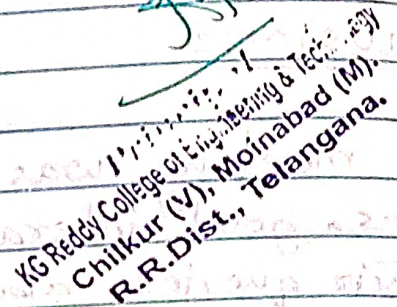 KG Reddy College of Engineering & Technology
Chilkur (V), Moinabad (M).
R.R.Dist., Telangana.